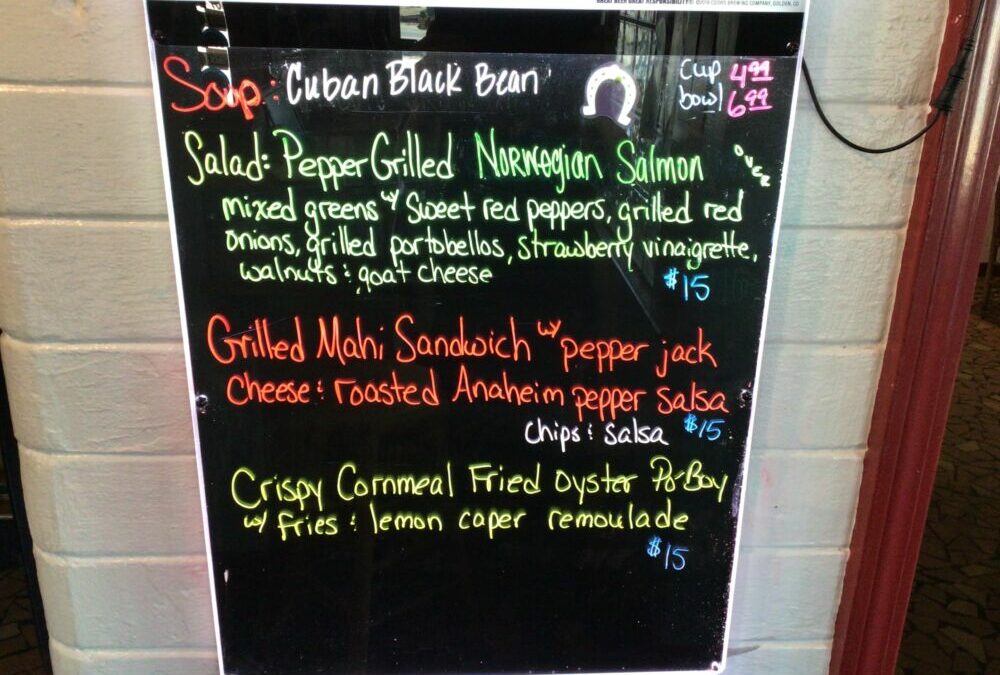 GREAT BEER GREAT RESPONSIBILITY® ©2016 COORS BREWING COMPANY, GOLDEN, CO
Soup: Cuban Black Bean
cup 4.99
bowl 6.99
Salad: Pepper Grilled Norwegian Salmon over
mixed greens w/ sweet red peppers, grilled red
onions, grilled portobellos, strawberry vinaigrette,
walnuts & goat cheese
$15
Grilled Mahi Sandwich w/ pepper jack
cheese & roasted Anaheim pepper salsa
chips & salsa $15
Crispy Cornmeal Fried Oyster Po-Boy
w/ fries & lemon caper remoulade
$15